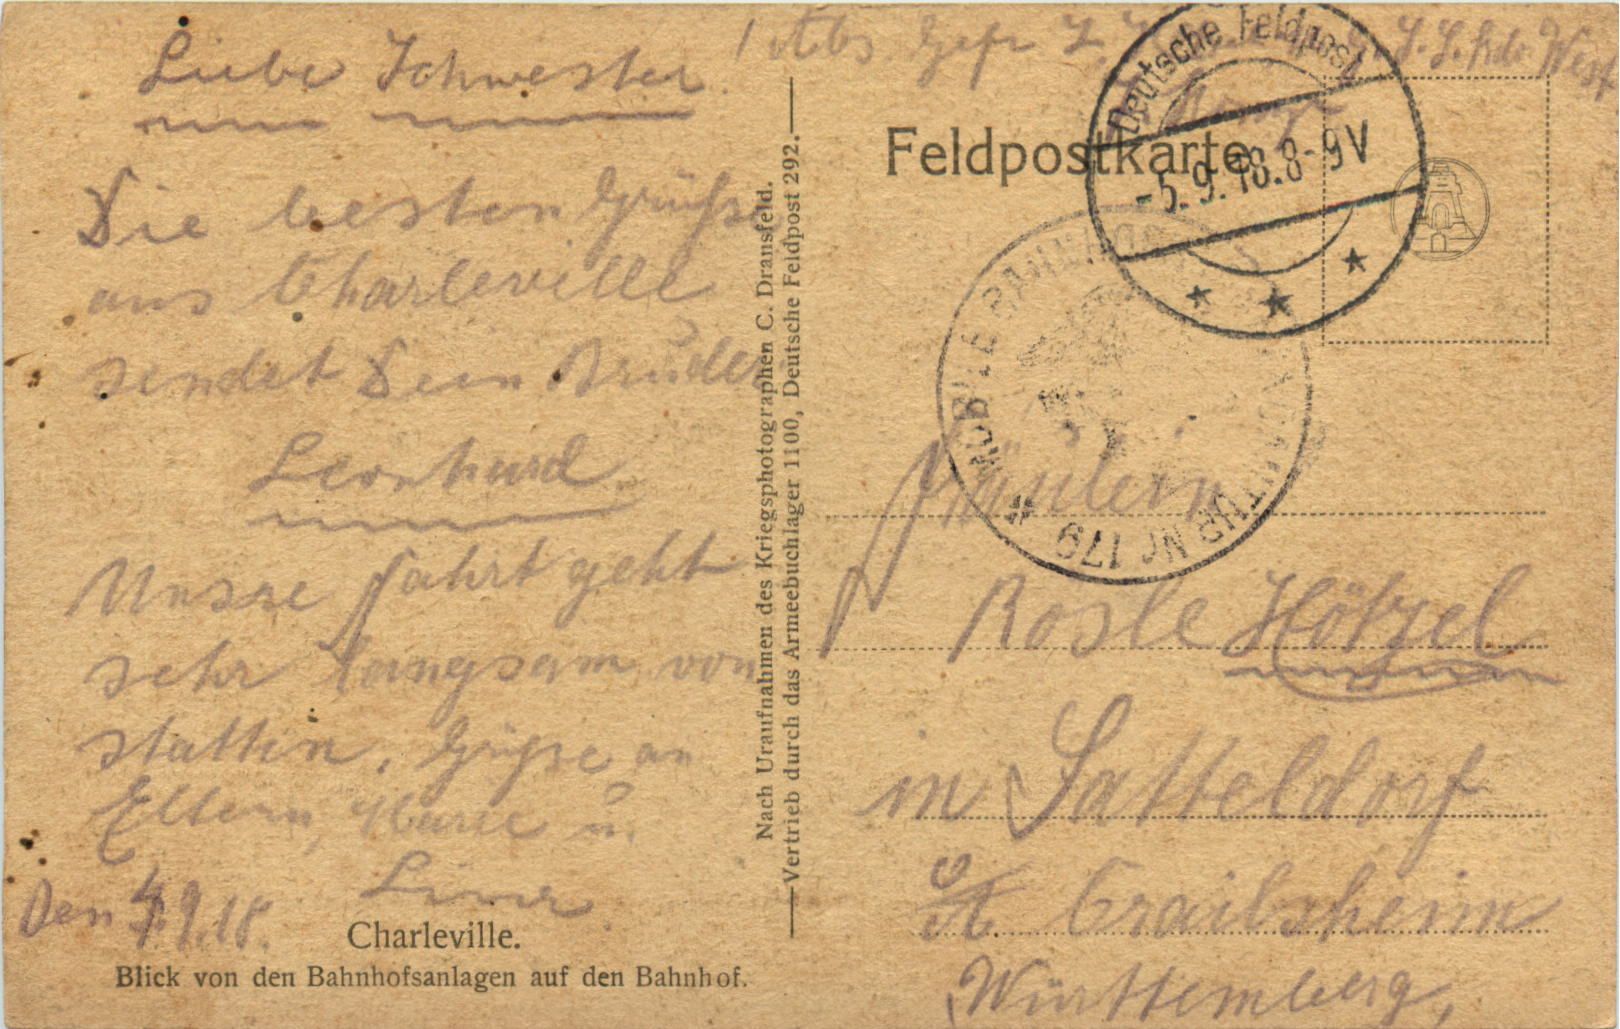 Liebe Schwester!
Die besten Grüsse
aus Charleville
sendet Dein Bruder
Leonhard.
Unsre Fahrt geht
sehr langsam von
statten. Grüsse an
Eltern, Marie u.
Lina.
Den 4.9.18.
Charleville.
Blick von den Bahnhofsanlagen auf den Bahnhof.
Nach Uraufnahmen des Kriegsphotographen C. Dransfeld.
Vertrieb durch das Armeebuchlager 1100, Deutsche Feldpost 292.
Abs. Gefr. L. West
Feldpostkarte
Deutsche Feldpost
-5.9.18.8-9V
MOBILE BAHNHOFS KOMMANDANTUR Nr 179
Fräulein
Rosle Hötzel
in Satteldorf
OA. Crailsheim
Württemberg.